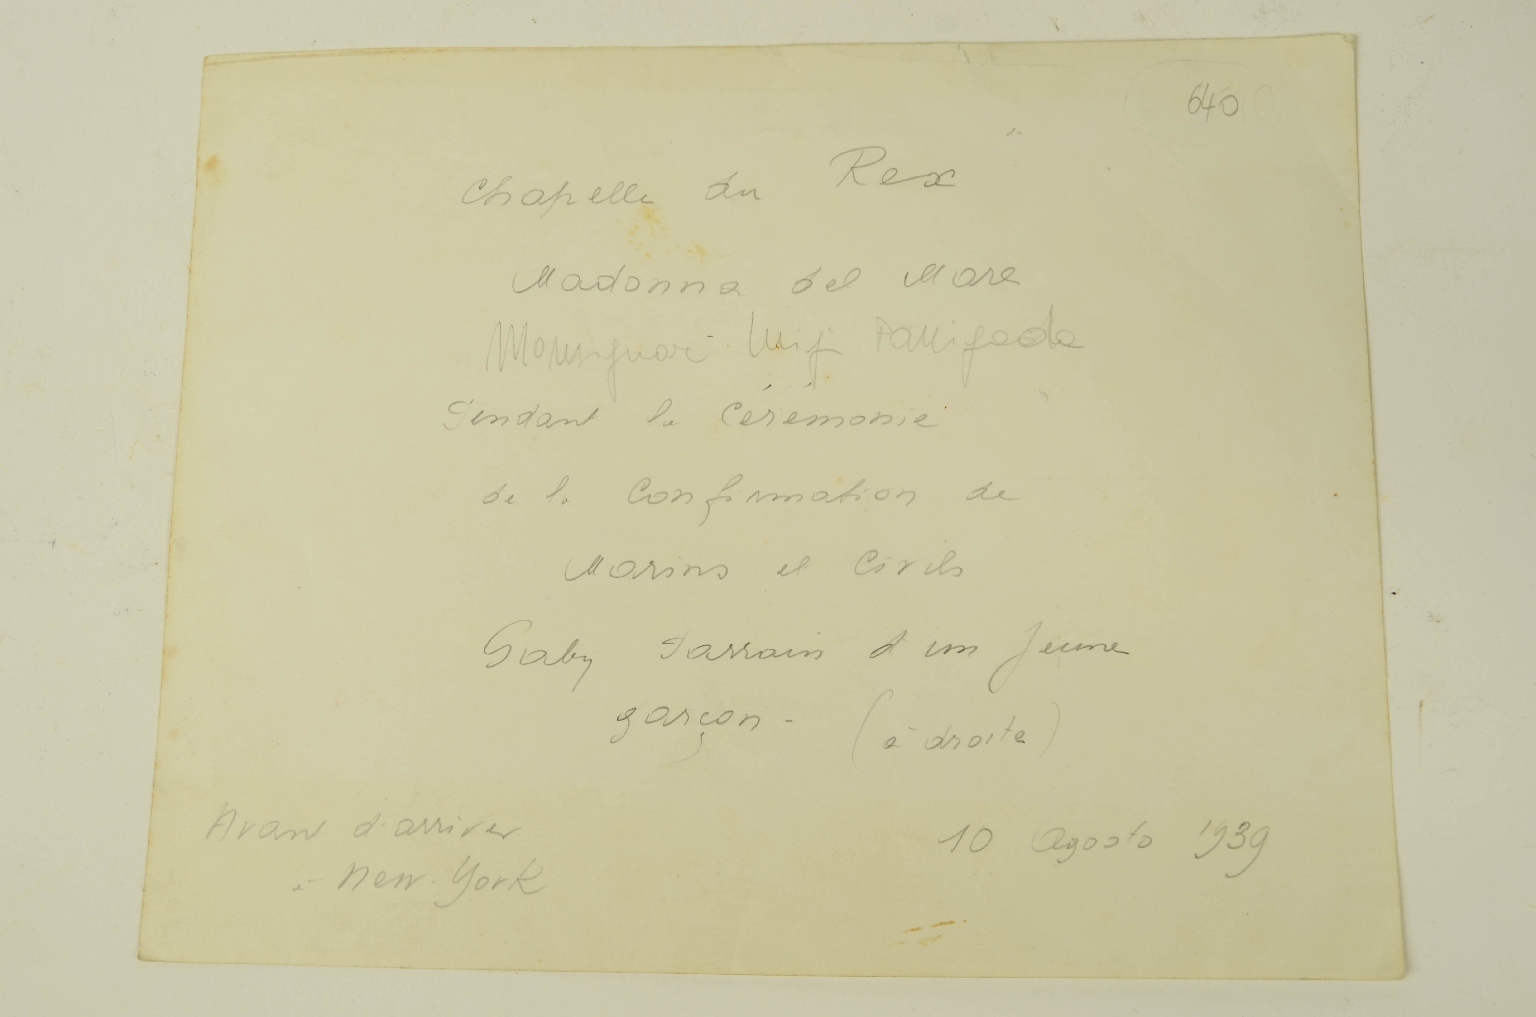 640
Chapelle du Rex"
Madonna del Mare
Monsignor Luigi
Pendant la Cérémonie
de la Confirmation de
Marins et Civils
Gaby Parrain d'un jeune
garçon - (à droite)
Avant d'arriver
à New-York
10 Agosto 1939